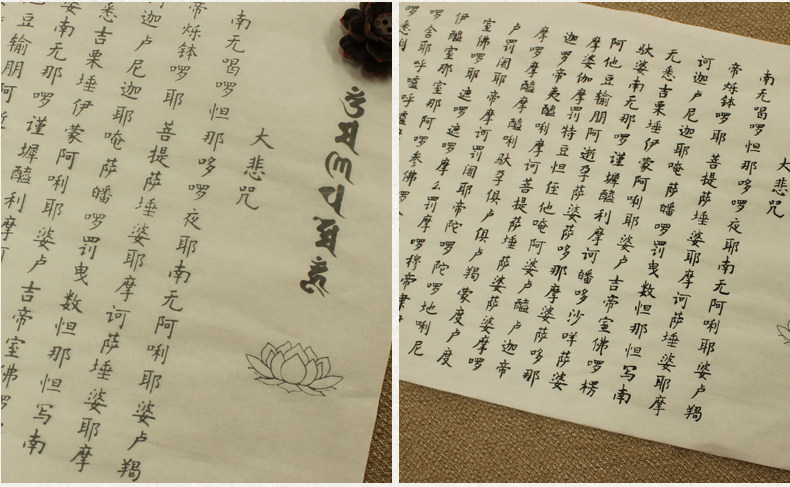 大悲咒
南无喝啰怛那哆啰夜耶南无阿唎耶婆卢羯
帝烁钵啰耶 菩提萨埵婆耶摩诃萨埵婆耶摩
迦卢尼迦耶唵萨皤啰罚曳数怛那怛写南
悉吉栗埵伊蒙阿唎耶婆卢吉帝室佛啰
婆南无那啰谨墀醯利摩
豆输朋阿
大悲咒
南无喝啰怛那哆啰夜耶南无阿唎耶婆卢羯
帝烁钵啰耶 菩提萨埵婆耶摩诃萨埵婆耶摩
诃迦卢尼迦耶唵萨皤啰罚曳数怛那怛写南
无悉吉栗埵伊蒙阿唎耶婆卢吉帝室佛啰楞
驮婆南无那啰谨墀醯利摩诃皤哆沙咩萨婆
阿他豆输朋阿逝孕萨婆萨哆那摩婆萨哆那
摩婆伽摩罚特豆怛侄他唵阿婆卢醯卢迦帝
迦罗帝夷醯唎摩诃菩提萨埵萨婆萨婆摩啰
摩啰摩醯摩醯唎驮孕俱卢俱卢羯蒙度卢度
卢罚阇耶帝摩诃罚阇耶帝陀啰陀啰地唎尼
室佛啰耶遮啰遮啰摩么罚摩啰穆帝隶
伊醯室那室那阿啰参佛啰
啰舍耶呼嚧呼嚧